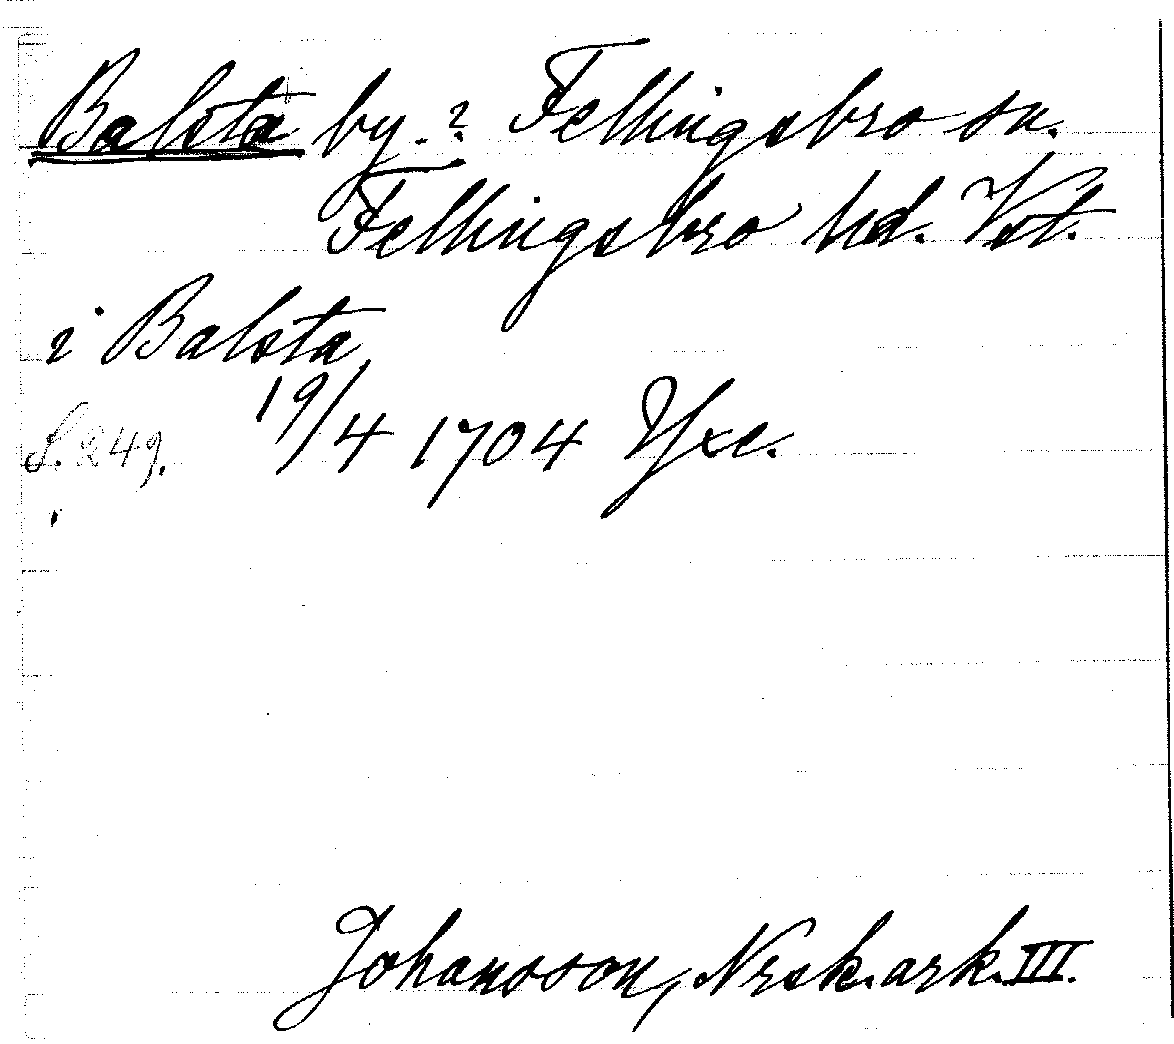 Balsta by.? Fellingsbro sn.
Fellingsbro hd. Vst.
i Balsta
S. 249. 19/4 1704 Yxe.
Johansson, Nrsk. ark. III.